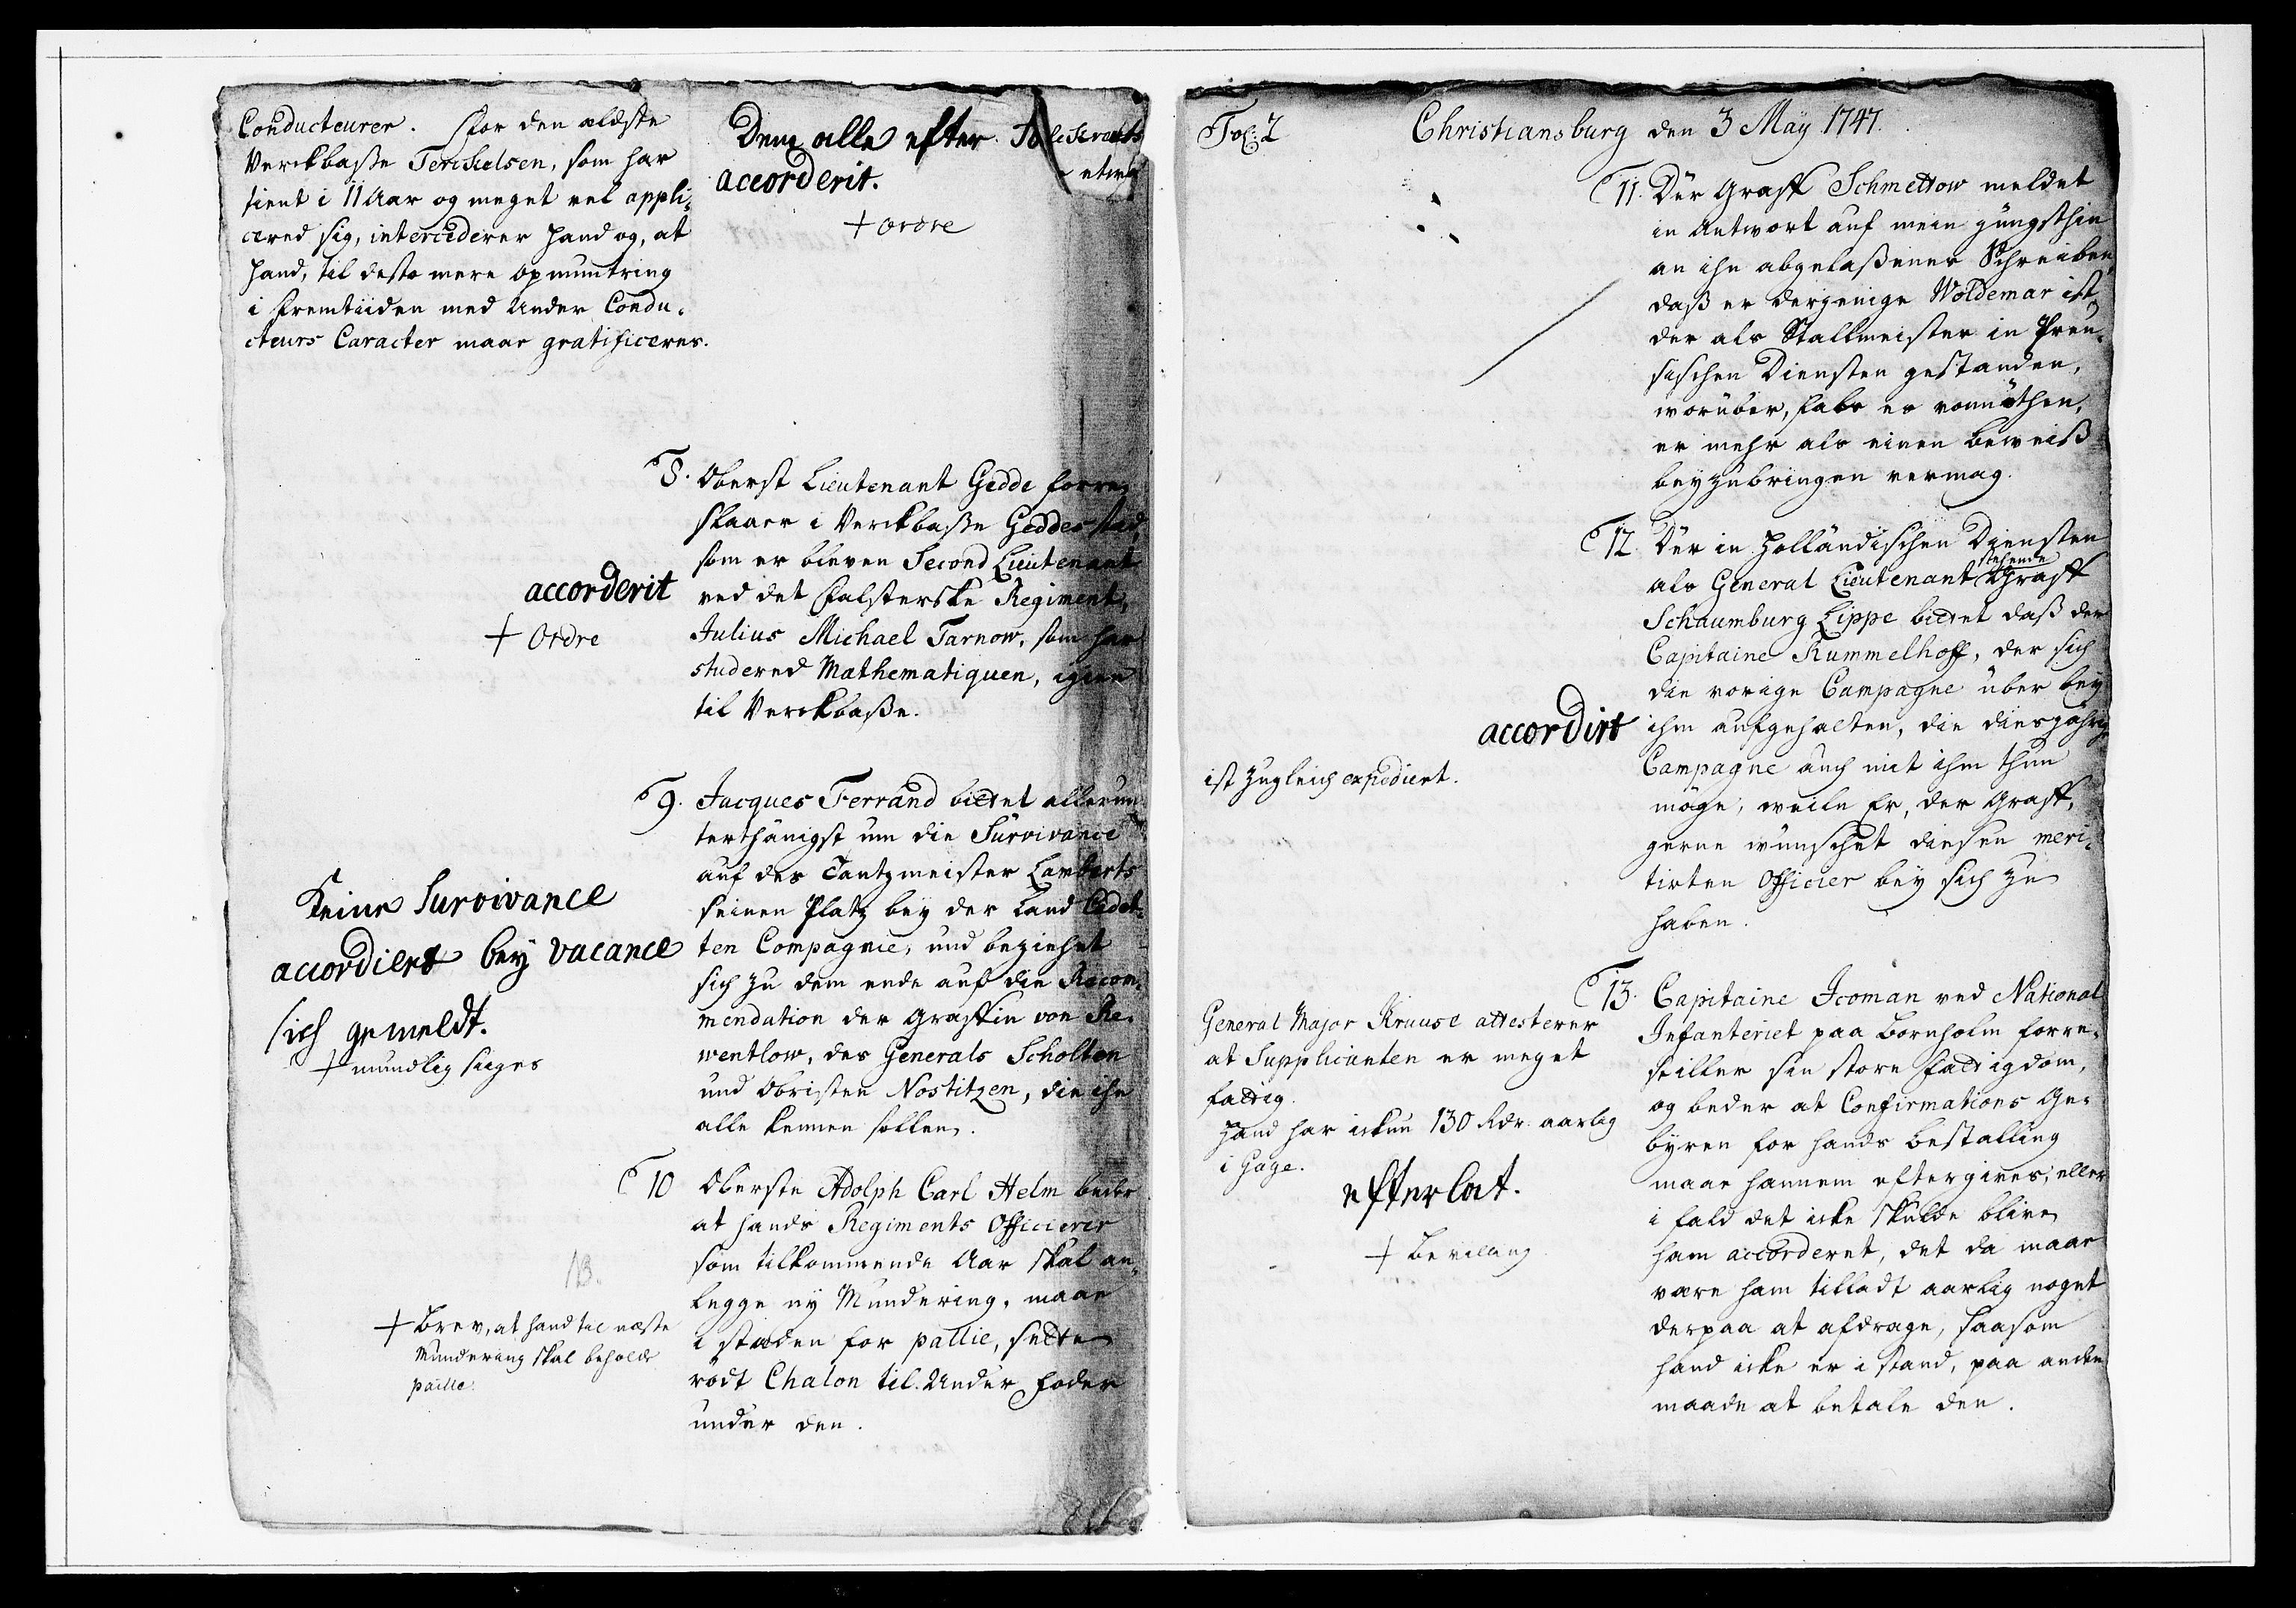 Conducteurer. For den ældste
Verckbaße Terckelsen, som har
tient i 11 Aar og meget vel appli¬
cered sig, intercederer hand og, at
hand, til desto mere opmuntring
i Fremtiiden med Under Condu¬
cteurs Caracter maae gratificeres.
Dem alle efter
accorderit.
+ ordre
8. Oberst Lieutenant Gedde fore¬
slaaer i Verckbaße Geddes stæd,
som er bleven Second Lieutenant
ved det Falsterske Regiment,
Julius Michael Tarnow, som har
studered Mathematiquen, igien
til Verckbaße.
accorderit
+ Ordre
9. Jacques Ferrand bittet allerun
terthänigst um die Survivance
auf des Tantzmeister Lamberts
seinen Platz bey der Land Cadet¬
ten Compagnie, und beziehet
sich zu dem ende auf die Recom¬
mendation der Graffin von Re¬
wentlow, des Generals Scholten
und Obristen Nostitzen, die ihn
alle kennen sollen.
Keine Survivance
accordiert bey vacance
sich gemeldt.
+ mundlig siges
10 Oberste Adolph Carl Helm beder
at hands Regiments Officierer
som tilkommende Aar skal an¬
legge ny Mundering, maae
i stæden for pallie, sette
rødt Chalon til Under foder
under den.
NB.
+ Brev, at hand til næste
Mundering skal beholde
paille.
Fol: 2
Christiansburg den 3 May 1747.
11. Der Graff Schmettow meldet
in Antwort auf mein jüngsthin
an ihn abgelaßenes Schreiben,
daß er derjenige Woldemar ist,
der als Stallmeister in Preu¬
sischen Diensten gestanden,
worüber, fals es vonnöthen,
er mehr als einen beweiß
beyzubringen vermag.
12. Der in Holländischen Diensten
als General Lieutenant stehende Graff
Schaumburg Lippe bittet daß der
Capitaine Rummelhoff, der sich
die vorige Campagne über bey
ihm aufgehalten, die diesjährig
Campagne auch mit ihm thun
möge, weiln Er, der Graff,
gerne wünschet diesen meri¬
tirten Officier bey sich zu
haben.
accordirt
ist zugleich expediert.
13. Capitaine Icoman ved National
Infanteriet paa Bornholm fore¬
stiller sin store Fattigdom,
og beder at Confirmations Ge¬
byren for hands bestalling
maae hannem eftergives; eller
i fald det icke skulde blive
ham accorderet, det da maae
være ham tilladt aarlig noget
derpaa at afdrage, saasom
hand icke er i stand, paa anden
maade at betale den.
General Major Kruuse attesterer
at Supplicanten er meget
fattig.
Hand har ickun 130 Rdr. aarlig
i Gage.
efterlat.
+ bevilling